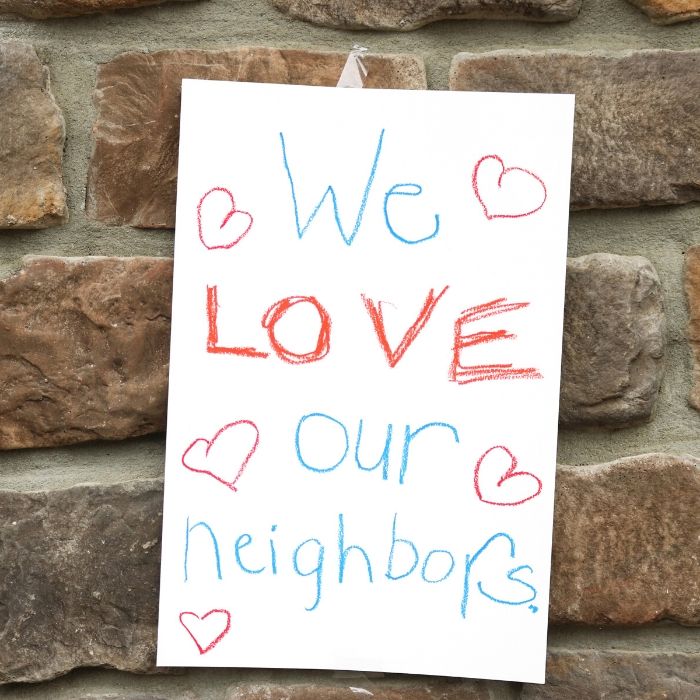 We
LOVE
our
neighbors.